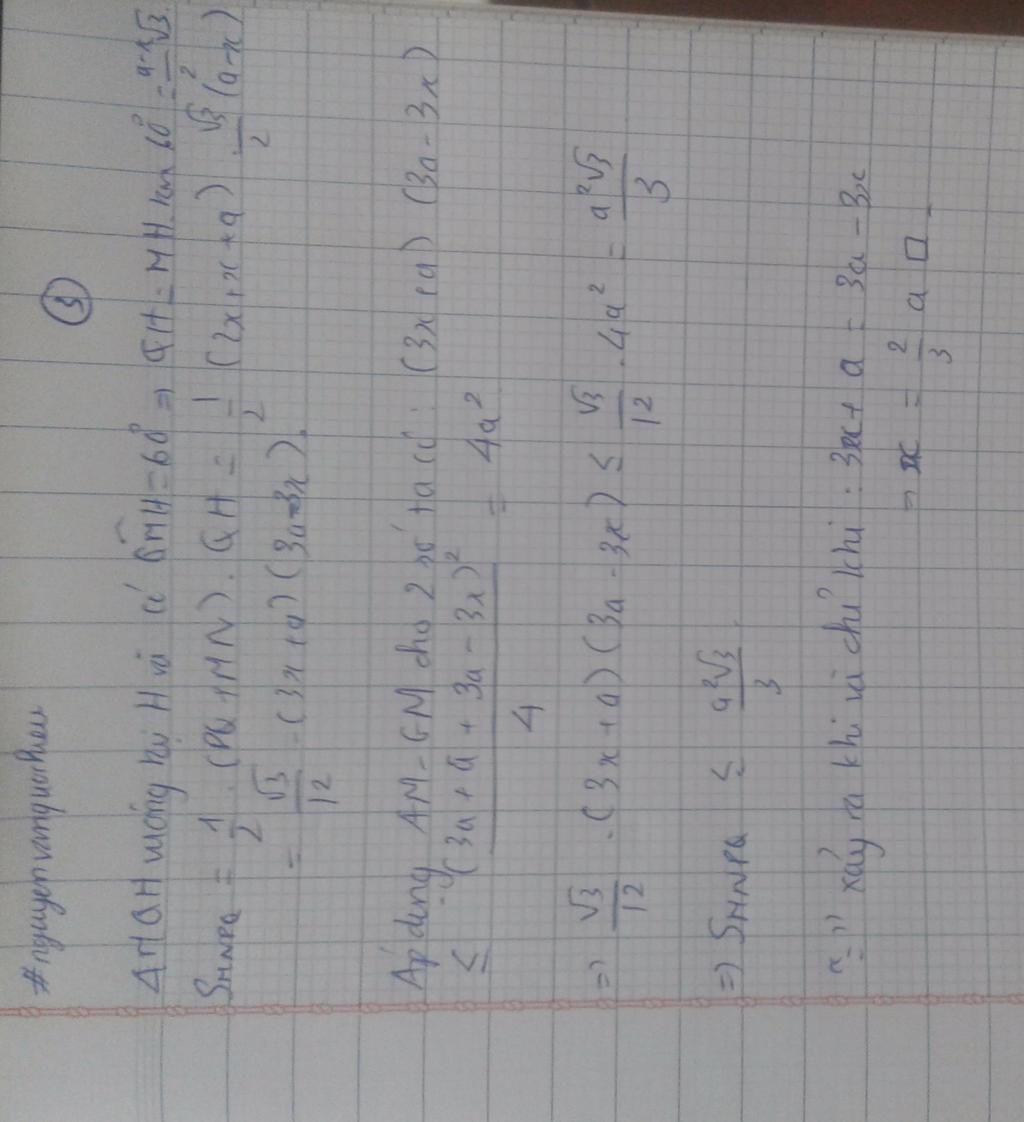 #nguyenvanquochieu
③
ΔMQH vuông tại H và có QMH = 60° ⇒ QH = MH. tan 60° = (a-x)/2 √3.
S_MNPQ = 1/2 . (PQ + MN) . QH = 1/2 (2x + x + a) . √3/2 (a - x)
= √3/12 . (3x + a) (3a - 3x).
Áp dụng AM-GM cho 2 số ta có: (3x + a) (3a - 3x)
≤ (3x + a + 3a - 3x)²/4 = 4a²
⇒ √3/12 . (3x + a) (3a - 3x) ≤ √3/12 . 4a² = a²√3/3
⇒ S_MNPQ ≤ a²√3/3.
"=" xảy ra khi và chỉ khi: 3x + a = 3a - 3x
⇒ x = 2/3 a □.